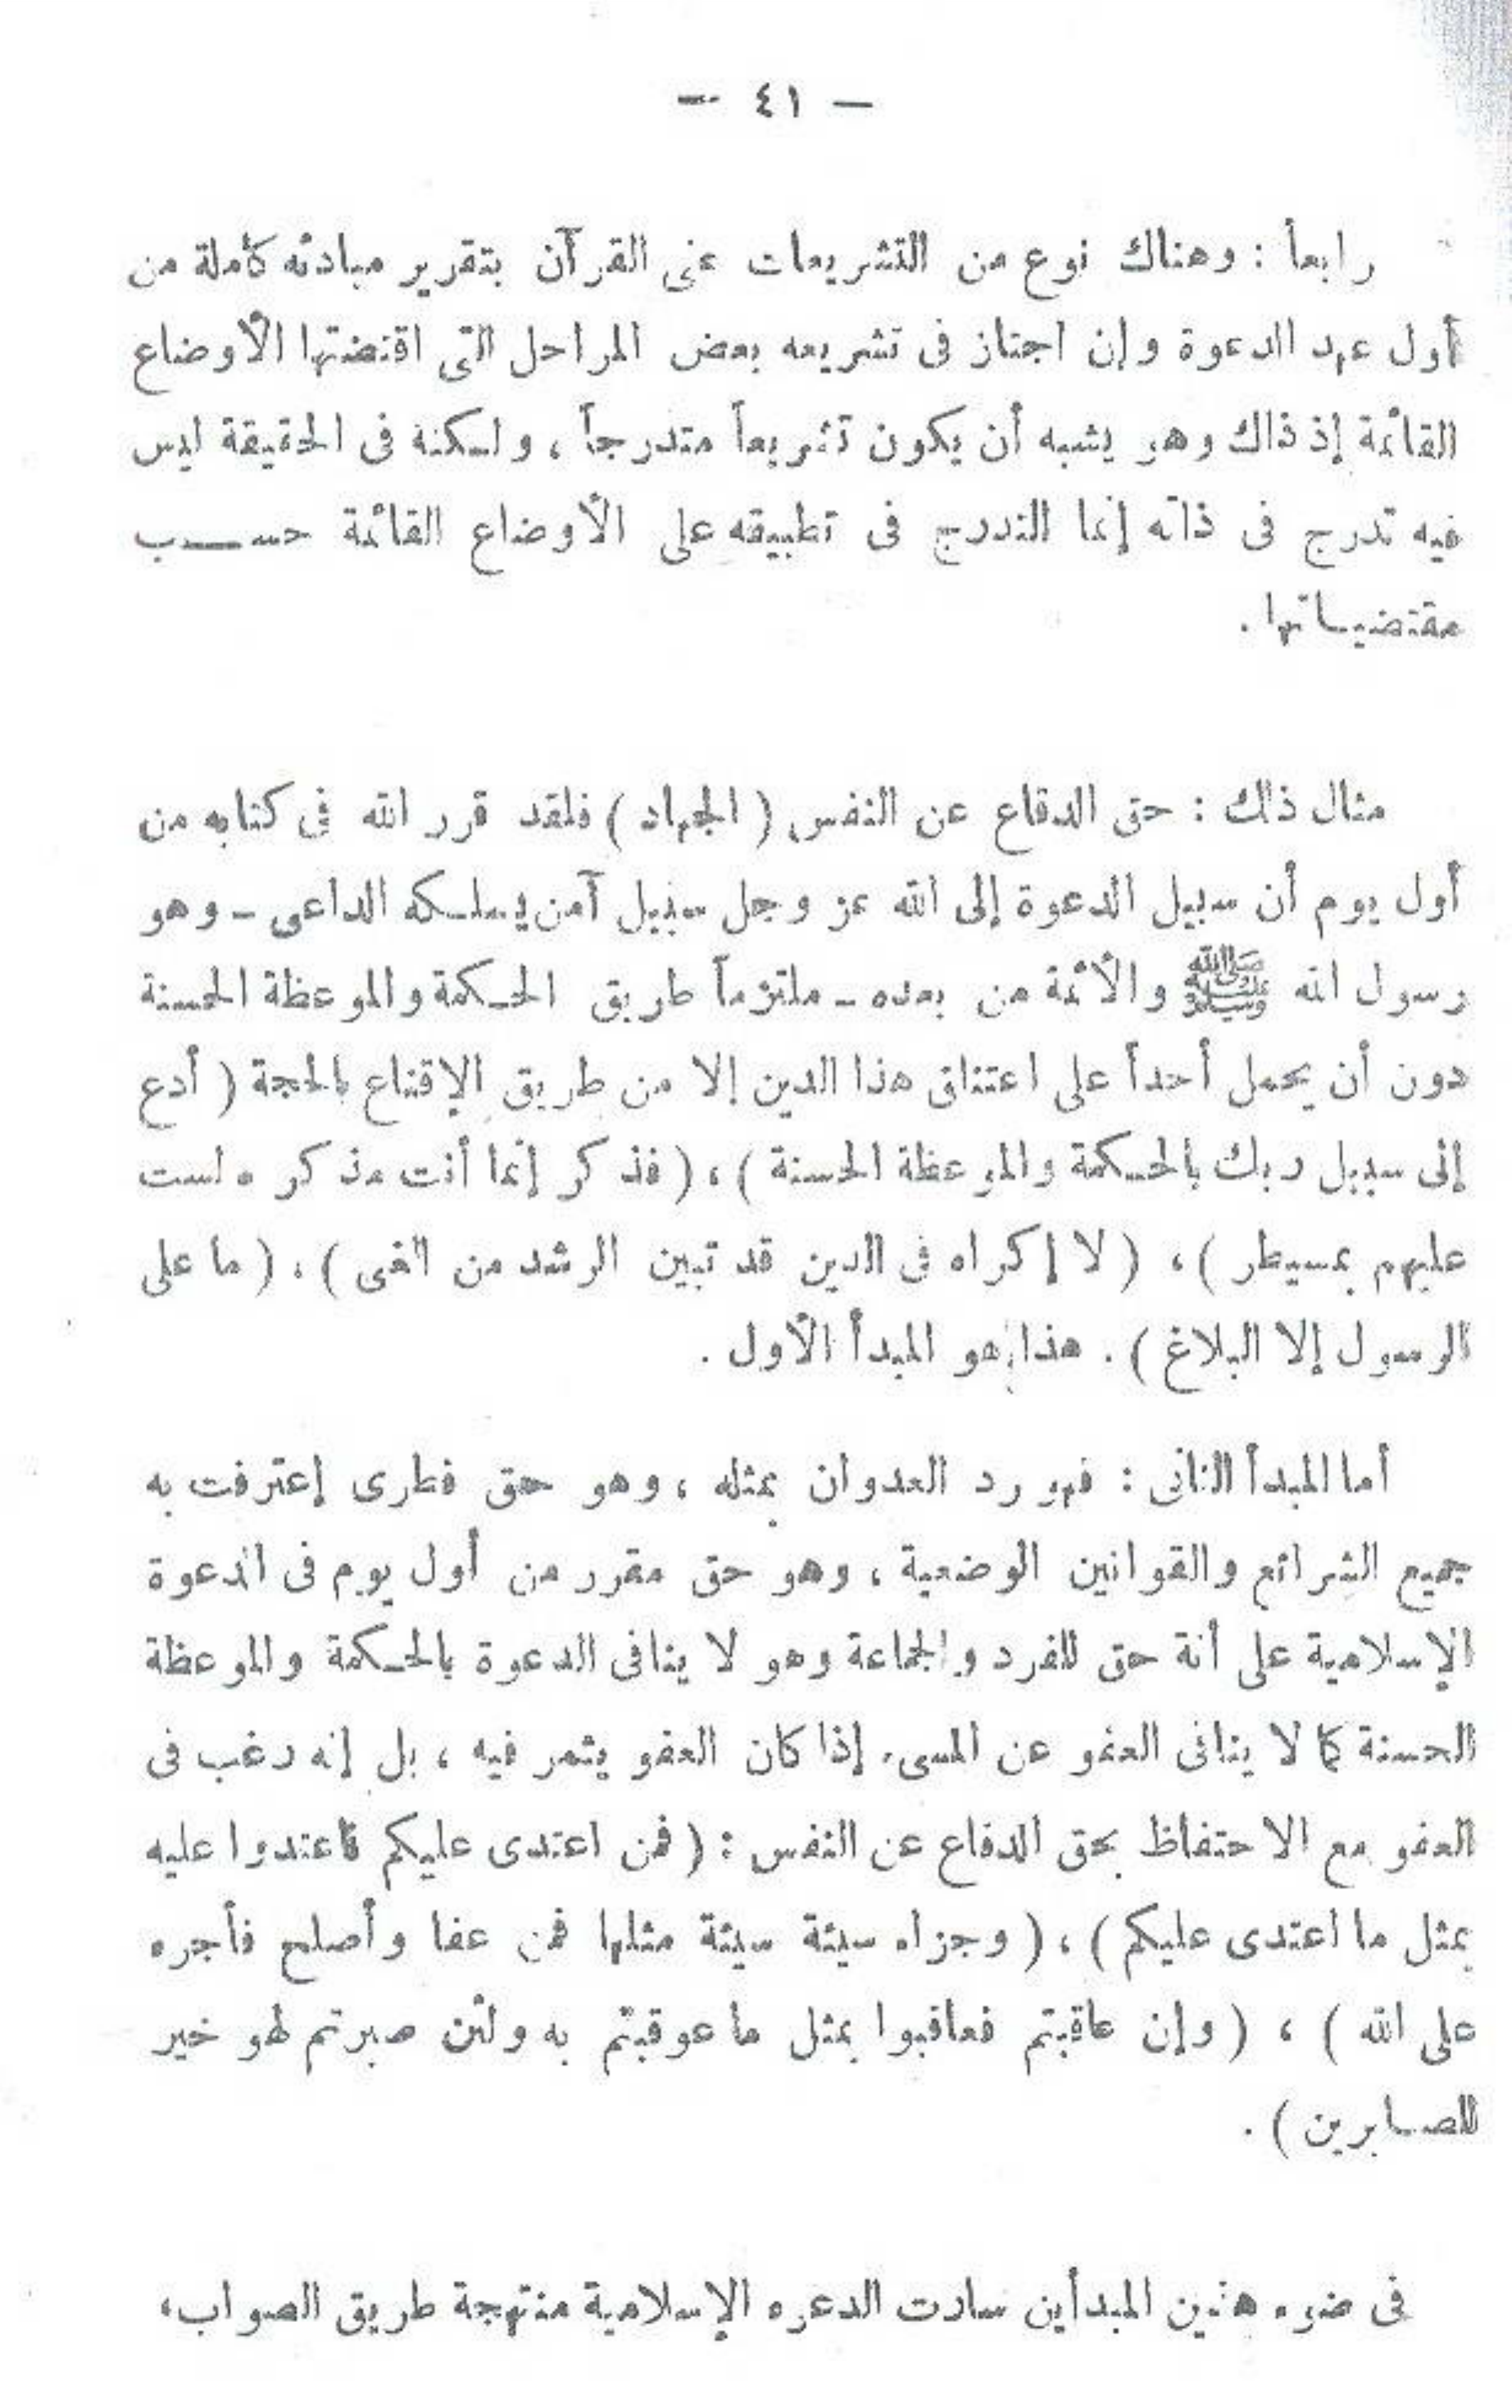 — ٤١ —
رابعاً : وهناك نوع من التشريعات عنى القرآن بتقرير مبادئه كاملة من
أول عهد الدعوة وإن اجتاز فى تشريعه بعض المراحل التى اقتضتها الأوضاع
القائمة إذ ذاك وهو يشبه أن يكون تشريعاً متدرجاً ، ولكنة فى الحقيقة ليس
فيه تدرج فى ذاته إنما التدرج فى تطبيقه على الأوضاع القائمة حسب
مقتضياتها .
مثال ذلك : حق الدفاع عن النفس ( الجهاد ) فلقد قرر الله فى كتابه من
أول يوم أن سبيل الدعوة إلى الله عز وجل سبيل آمن يسلكه الداعى - وهو
رسول الله ﷺ والأئمة من بعده - ملتزماً طريق الحكمة والموعظة الحسنة
دون أن يحمل أحداً على اعتناق هذا الدين إلا من طريق الإقناع بالحجة ( أدع
إلى سبيل ربك بالحكمة والموعظة الحسنة ) ، ( فذكر إنما أنت مذكر ه لست
عليهم بمسيطر ) ، ( لا إكراه فى الدين قد تبين الرشد من الغى ) ، ( ما على
الرسول إلا البلاغ ) . هذا هو المبدأ الأول .
أما المبدأ الثانى : فهو رد العدوان بمثله ، وهو حق فطرى إعترفت به
جميع الشرائع والقوانين الوضعية ، وهو حق مقرر من أول يوم فى الدعوة
الإسلامية على أنة حق للفرد والجماعة وهو لا ينافى الدعوة بالحكمة والموعظة
الحسنة كما لا ينافى العفو عن المسىء إذا كان العفو يثمر فيه ، بل إنه رغب فى
العفو مع الاحتفاظ بحق الدفاع عن النفس : ( فمن اعتدى عليكم فاعتدوا عليه
بمثل ما اعتدى عليكم ) ، ( وجزاء سيئة سيئة مثلها فمن عفا وأصلح فأجره
على الله ) ، ( وإن عاقبتم فعاقبوا بمثل ما عوقبتم به ولئن صبرتم لهو خير
للصابرين ) .
فى ضوء هذين المبدأين سارت الدعوه الإسلامية منتهجة طريق الصواب ،